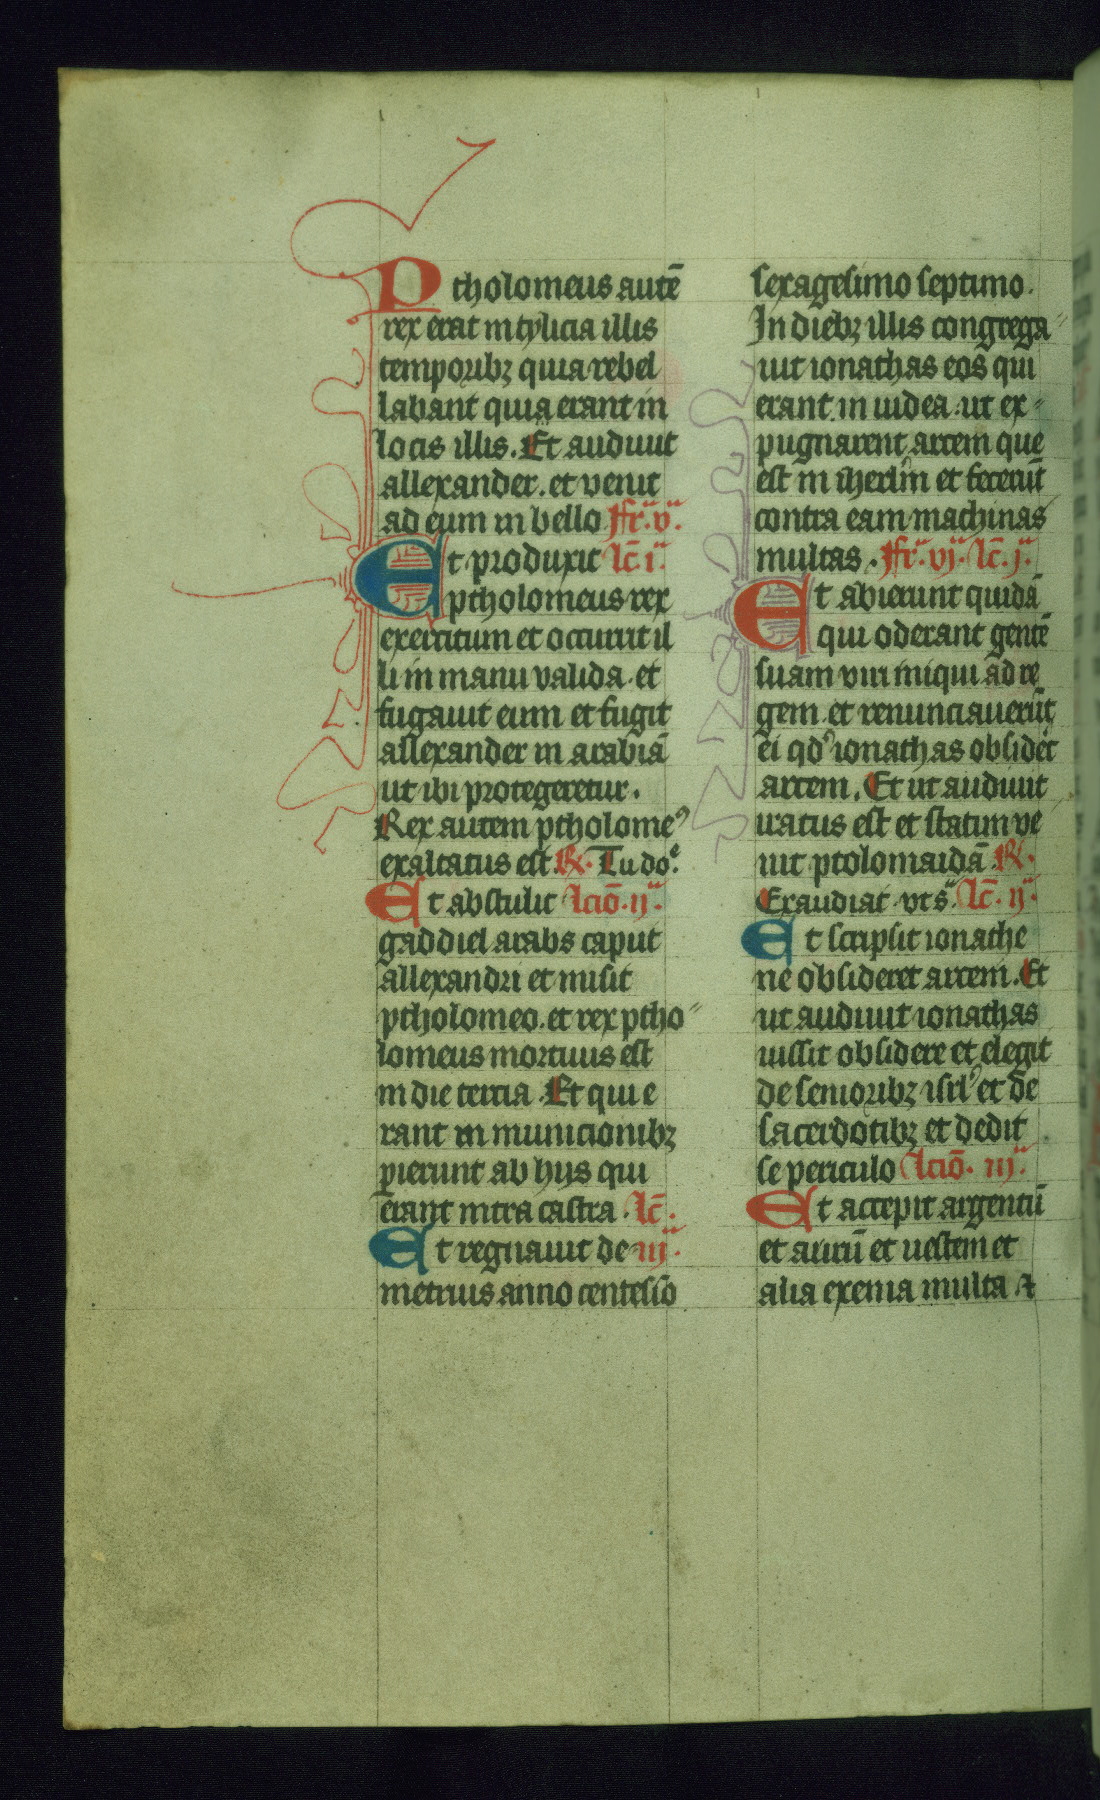 Ptholomeus autē
rex erat in tylicia illis
temporibꝫ quia rebel
labant quia erant in
locis illis. Et audiuit
allexander. et venit
ad eum in bello ffr̄. v.
Et produxit lc̄. i.
ptholomeus rex
exercitum et occurrit il
li in manu valida. et
fugauit eum et fugit
allexander in arabiā
ut ibi protegeretur.
Rex autem ptholomeꝰ
exaltatus est R. Tu do.
Et abstulit lcio̅. ij.
gaddiel arabs caput
allexandri et misit
ptholomeo. et rex ptho
lomeus mortuus est
in die tercia. Et qui e
rant in municionibꝫ
pierunt ab hijs qui
erant intra castra. lc̄.
Et regnauit de iij.
metrius anno centesio
sexagesimo septimo.
In diebꝫ illis congrega
uit ionathas eos qui
erant in iudea. ut ex
pugnarent arcem que
est in iherlm̄ et fecerūt
contra eam machinas
multas. ffr̄. vj. lc̄. j.
Et abierunt quidā
qui oderant gentē
suam viri iniqui ad re
gem. et renunciauerūt
ei qd' ionathas obsidet
arcem. Et ut audiuit
iratus est et statim ve
nit ptolomaidā. R.
Exaudiat. vt s. lc̄. ij.
Et scripsit ionathe
ne obsideret arcem. Et
ut audiuit ionathas
iussit obsidere et elegit
de senioribꝫ isrl' et de
sacerdotibꝫ et dedit
se periculo lcio̅. iij.
Et accepit argentū
et aurū et uestem et
alia exenia multa ⁊